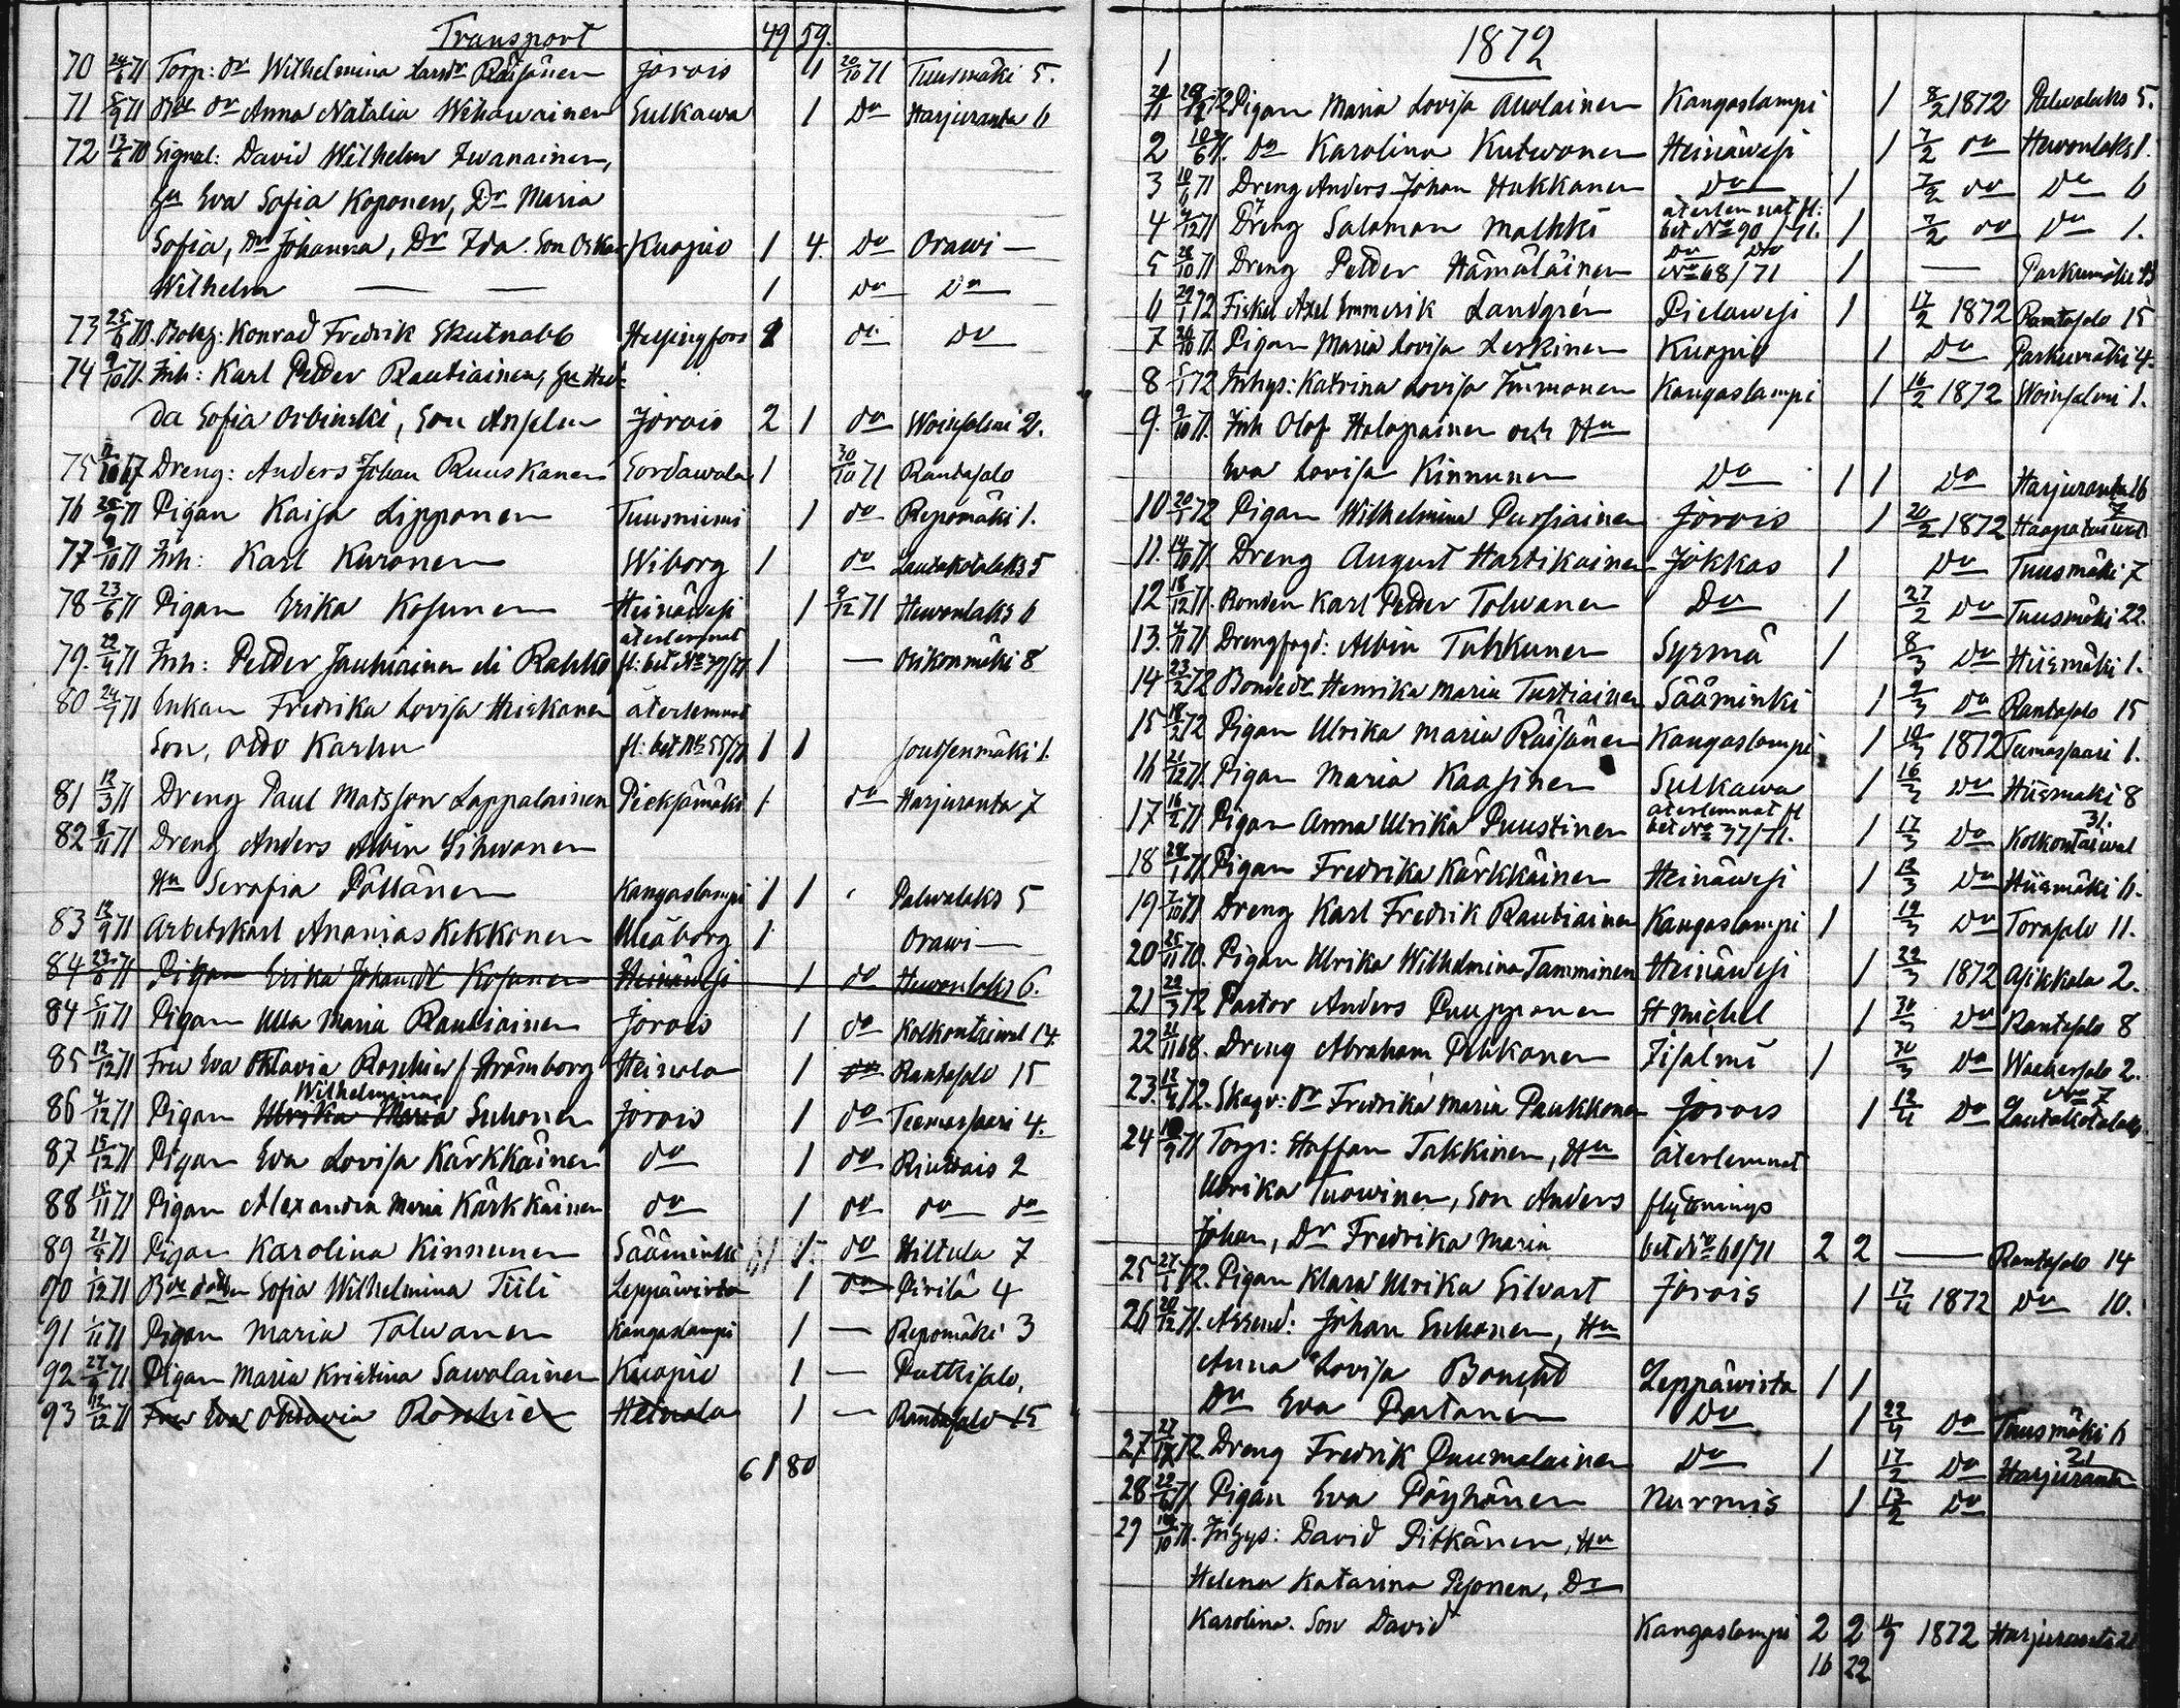 Transport 49 59.
70 24/6 71 Torp: dr Wilhelmina Larsdr Räisänen Jorois 1 20/10 71 Tuusmäki 5.
71 5/9 71 dr Anna Natalia Wihawainen Sulkawa 1 Do Harjuranta 6
72 13/6 70 Signal: David Wilhelm Iwanainen,
Hu Eva Sofia Koponen, Dr Maria
Sofia, Dr Johanna, Dr Ida. Son Oskar Kuopio 1 4. Do Orawi —
Wilhelm — — 1 Do Do
73 25/6 70. Bokh: Konrad Fredrik Skutnabb Helsingfors 1 do Do
74 9/10 71. Inh: Karl Petter Rautiainen, Hu Hed-
da Sofia Orbinski, Son Anselm Jorois 2 1 do Woinsalmi 2.
75 67 Dreng: Anders Johan Ruuskanen Sordawala 1 30/10 71 Rantasalo
76 25/9 71 Pigan Kaisa Lipponen Tuusniemi 1 do Repomäki 1.
77 9/10 71 Inh: Karl Kuronen Wiborg 1 do Lautakotalaks 5
78 23/6 71 Pigan Erika Kosunen Heinäwesi 1 9/12 71 Hewonlaks 6
återlemnat
79. 22/4 71 Inh: Petter Jauhiainen eli Rahko fl: bet No 37/71 1 — Osikonmäki 8
80 24/7 71 Enkan Fredrika Lovisa Hiskanen återlemnat
Son, Otto Karhu fl: bet No 55/71 1 1 Joutsenmäki 1.
81 12/3 71 Dreng Paul Matsson Lappalainen Pieksämäki 1. do Harjuranta 7
82 8/11 71 Dreng Anders Albin Sihwonen
Hu Serafia Pöllänen Kangaslampi 1 1 Palwalaks 5
83 12/9 71 Arbetskarl Ananias Kekkonen Uleåborg 1 Orawi —
84 23/6 71 Pigan Erika Johansdr Kosunen Heinäwesi 1 do Hewonlaks 6.
84 5/11 71 Pigan Ulla Maria Rautiainen Jorois 1 do Kolkontaiwal 14.
85 12/12 71 Fru Eva Oktavia Roschier f Strömborg Heinola 1 do Rantasalo 15
Wilhelmina
86 4/12 71 Pigan Ulrika Maria Suhonen Jorois 1 do Teemassaari 4.
87 15/12 71 Pigan Eva Lovisa Kärkkäinen do 1 do Riuttais 2
88 15/11 71 Pigan Alexandra Maria Kärkkäinen do 1 do do do
89 21/5 71 Pigan Karolina Kinnunen Sääminki 1. do Hiltula 7
90 1/12 71 dotter Sofia Wilhelmina Tiili Leppäwirta 1 do Pirilä 4
91 1/11 71 Pigan Maria Tolwanen Kangaslampi 1 — Repomäki 3
92 27/9 71. Pigan Maria Kristina Sawolainen Kuopio 1 — Putkisalo,
93 12/12 71 Fru Eva Oktavia Roschier Heinola 1 — Rantasalo 15
61 80
1872
1 72 Pigan Maria Lovisa Auolainen Kangaslampi 1 8/2 1872 Palwalaks 5.
2 10/6 71. Do Karolina Kutwonen Heinäwesi 1 7/2 do Hewonlaks 1.
3 10/6 71 Dreng Anders Johan Hukkanen Do 1 7/2 do Do 6
återlemnat fl:
4 4/12 71 Dreng Salomon Malkki bet No 90/71. 1 7/2 do Do 1.
Do Do
5 26/10 71 Dreng Petter Hämäläinen No 68/71 1 — Parkumäki
6 29/1 72 Fiskal Axel Emmerik Landgrén Pielawesi 1 17/2 1872 Rantasalo 15
7 24/10 71. Pigan Maria Lovisa Leskinen Kuopio 1 Do Parkumäki 4.
8 5/1 72 Inhys: Katrina Lovisa Immonen Kangaslampi 1 16/2 1872 Woinsalmi 1.
9. 9/10 71. Inh Olof Halopainen och Hu
Eva Lovisa Kinnunen Do 1 1 Do Harjuranta 16
10 20/1 72 Pigan Wilhelmina Pursiainen Jorois 1 20/2 1872 Haapataiwal 7
11. 14/10 71. Dreng August Hartikainen Jokkas 1 Do Tuusmäki 7
12 18/12 71. Bonden Karl Petter Tolwanen Do 1 27/2 Do Tuusmäki 22.
13. 4/11 71. Drengfogd: Albin Tuhkunen Sysmä 1 8/3 Do Hiismäki 1.
14 23/2 72 Bondedr Henrika Maria Turtiainen Sääminki 1 9/3 Do Rantasalo 15
15 18/2 72 Pigan Ulrika Maria Räisänen Kangaslampi 1 10/3 1872 Teemassaari 1.
16 21/12 71. Pigan Maria Kaasinen Sulkawa 1 16/3 Do Hiismäki 8
återlemnat fl
17 16/2 71 Pigan Anna Ulrika Puustinen bet No 37/71. 1 17/3 Do Kolkontaiwal 31.
18 24/1 71. Pigan Fredrika Kärkkäinen Heinäwesi 1 12/3 Do Hiismäki 6.
19 7/10 71 Dreng Karl Fredrik Rautiainen Kangaslampi 1 19/3 Do Torasalo 11.
20 25/11 70. Pigan Ulrika Wilhelmina Tamminen Heinäwesi 1 22/3 1872 Asikkala 2.
21 22/3 72 Pastor Anders Paupponen St Michel 1 30/3 Do Rantasalo 8
22 21/11 68. Dreng Abraham Pehkonen Iisalmi 1 30/3 Do Waahersalo 2.
23. 12/4 72. Skogv: dr Fredrika Maria Paukkonen Jorois 1 12/4 Do Lautakotalaks No 7
24 12/9 71 Torp: Staffan Takkinen, Hu återlemnat
Ulrika Tuowinen, Son Anders flyttnings
Johan, Dr Fredrika Maria bet No 60/71 2 2 — Rantasalo 14
25 27/1 72. Pigan Klara Ulrika Silvast Jorois 1 17/4 1872 Do 10.
26 20/12 71. Arrend: Johan Suhonen, Hu
Anna Lovisa Boucht Leppäwirta 1 1
Dr Eva Partanen Do 1 22/4 Do Tuusmäki 6
27 72. Dreng Fredrik Puumalainen Do 1 17/2 Do Harjuranta 21
28 22/6 71 Pigan Eva Pöyhönen Nurmis 1 13/2 Do
29 10/10 71. Inhys: David Pitkänen, Hu
Helena Katarina Pesonen, Dr
Karolina. Son David Kangaslampi 2 2 1872 Harjuranta 21
16 22